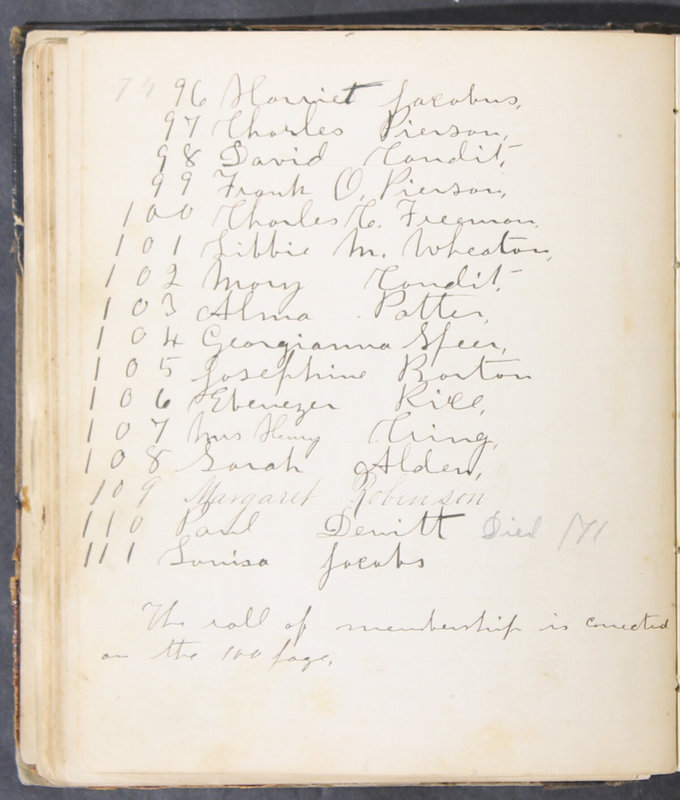 74 96 Harriet Jacobus,
97 Charles Pierson,
98 David Condit,
99 Frank O. Pierson,
100 Charles H. Freeman.
101 Libbie M. Wheaton,
102 Mary Condit,
103 Alma Potter,
104 Georgianna Speer,
105 Josephine Borton
106 Ebenezer
107 Mrs Henry
108 Sarah Alden,
109 Margaret Robinson
110 Paul Dewitt Died
111 Louisa Jacobs
The roll of membership is corrected
on the 100 page.